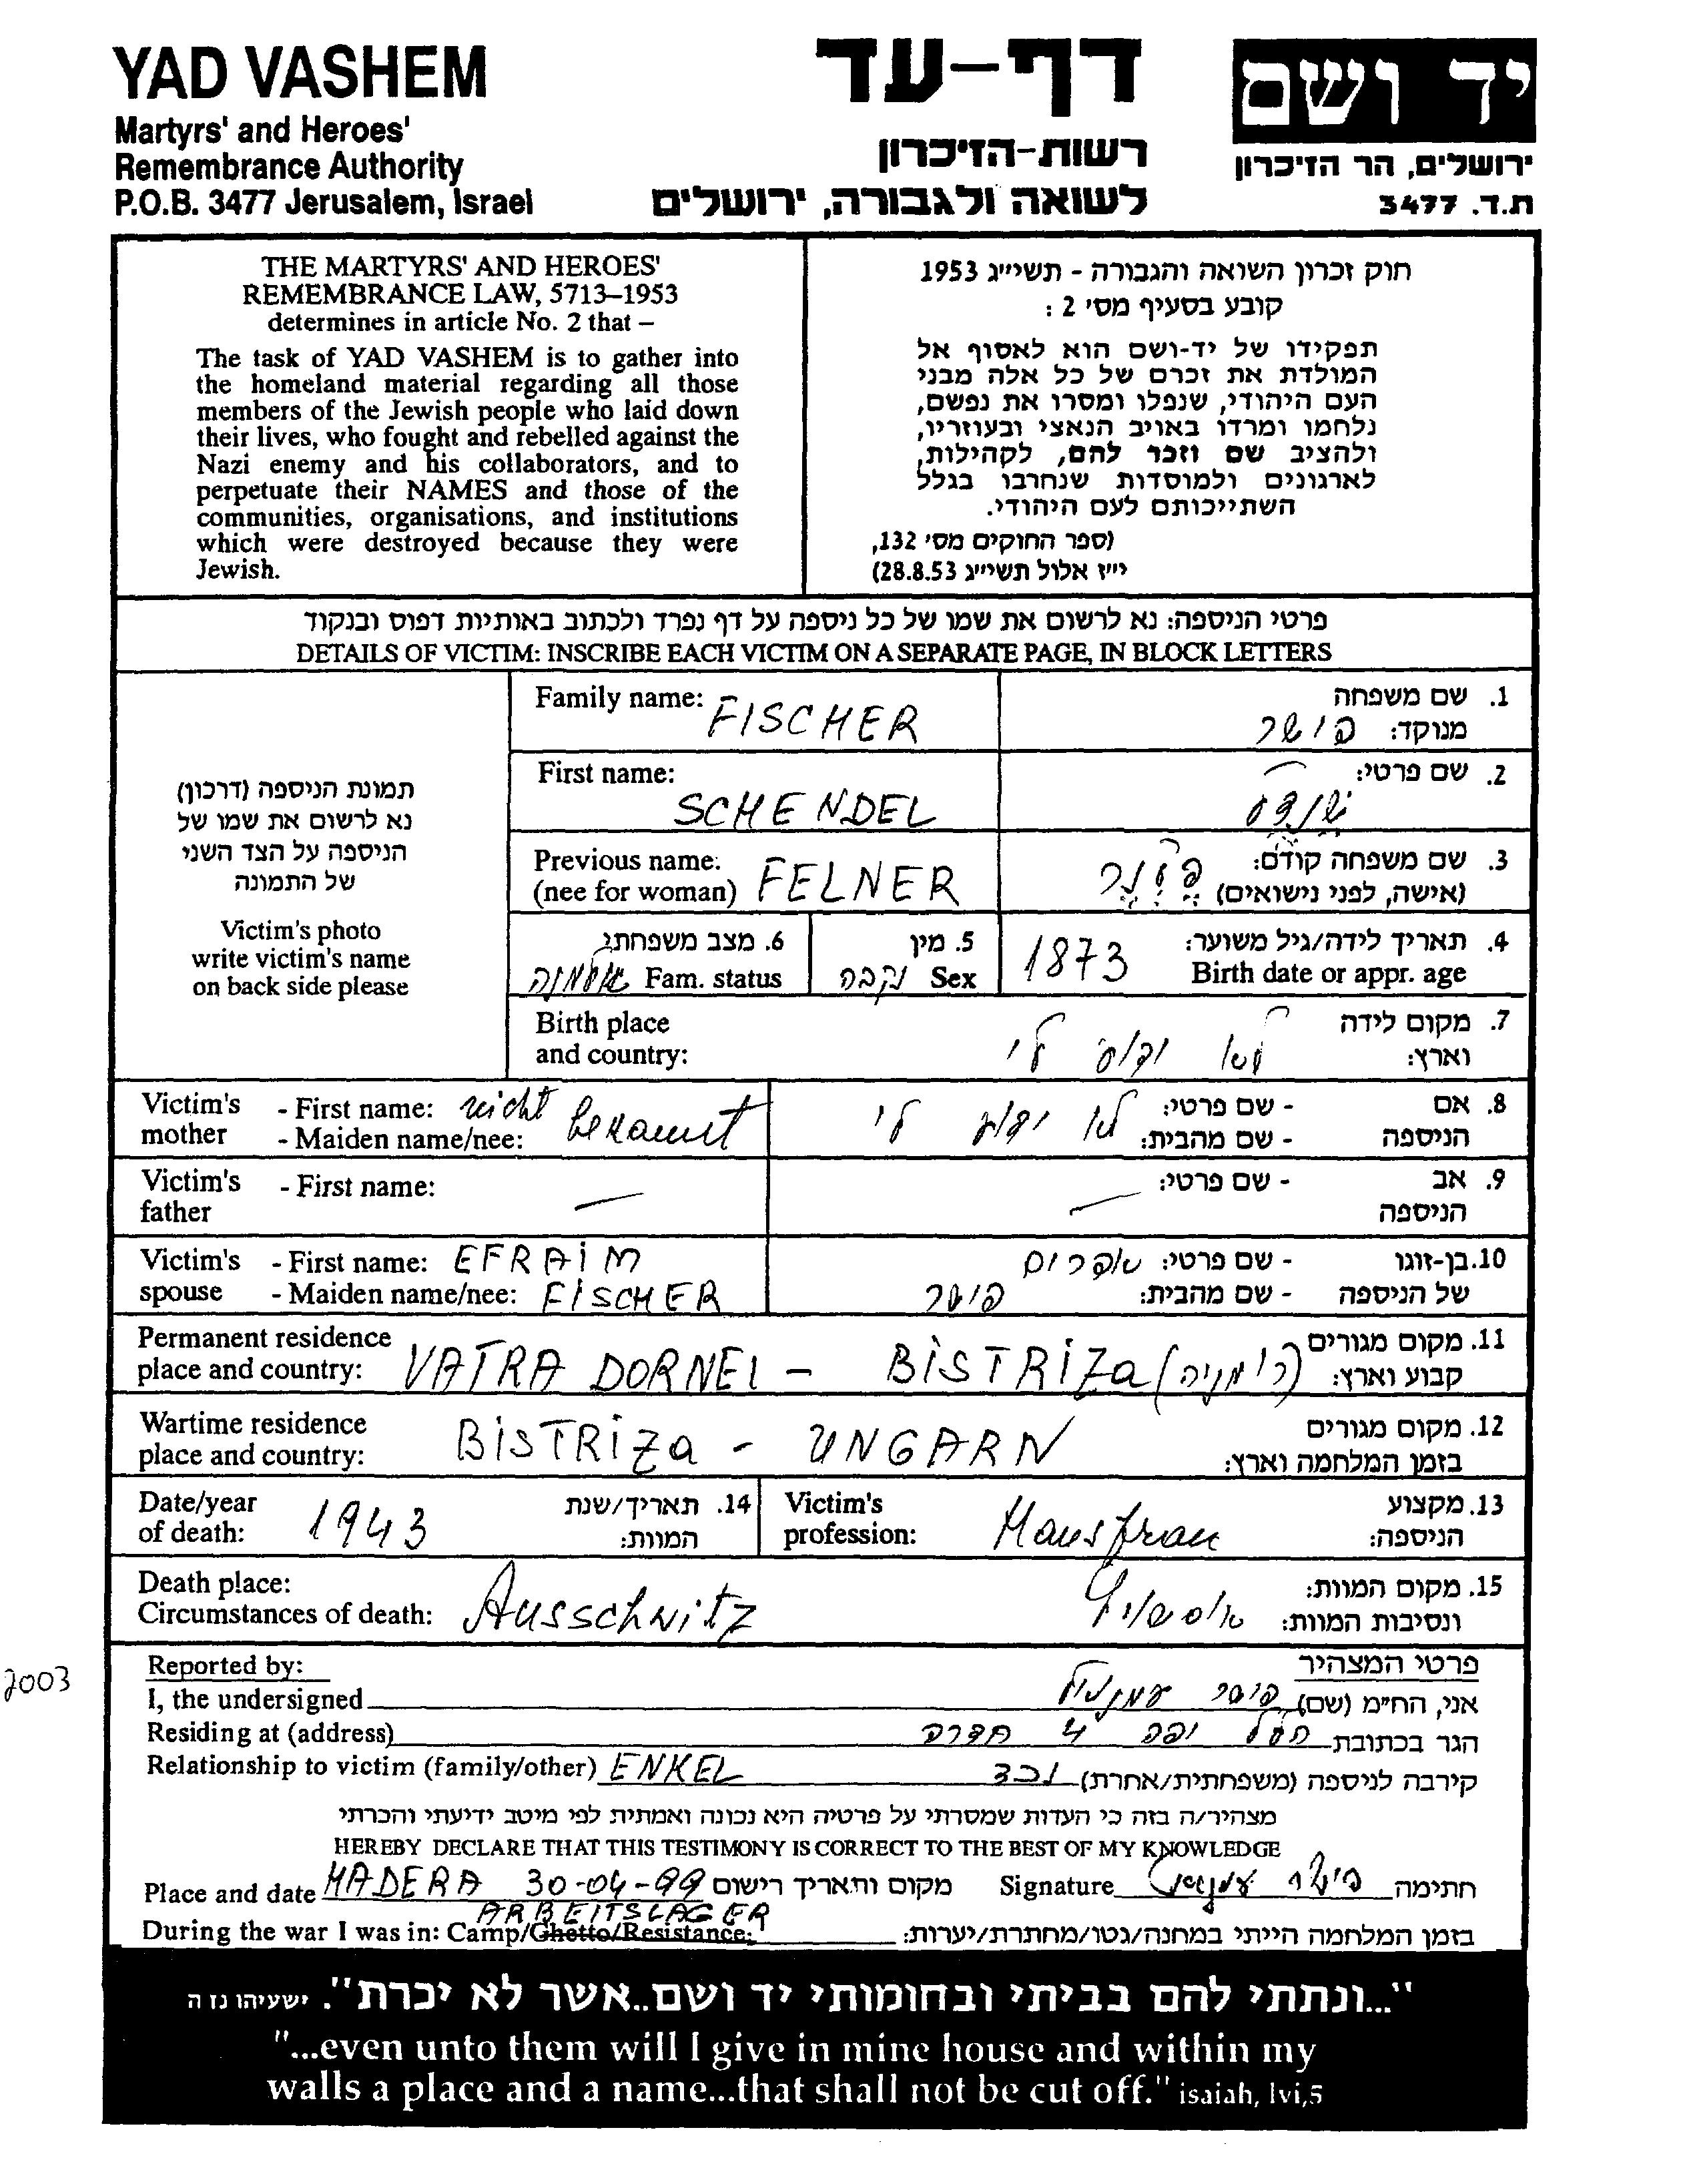 YAD VASHEM
Martyrs' and Heroes'
Remembrance Authority
P.O.B. 3477 Jerusalem, Israel
דף-עד
רשות-הזיכרון
לשואה ולגבורה, ירושלים
יד ושם
ירושלים, הר הזיכרון
ת.ד. 3477
THE MARTYRS' AND HEROES'
REMEMBRANCE LAW, 5713–1953
determines in article No. 2 that –
The task of YAD VASHEM is to gather into
the homeland material regarding all those
members of the Jewish people who laid down
their lives, who fought and rebelled against the
Nazi enemy and his collaborators, and to
perpetuate their NAMES and those of the
communities, organisations, and institutions
which were destroyed because they were
Jewish.
חוק זכרון השואה והגבורה - תשי״ג 1953
קובע בסעיף מס׳ 2 :
תפקידו של יד-ושם הוא לאסוף אל
המולדת את זכרם של כל אלה מבני
העם היהודי, שנפלו ומסרו את נפשם,
נלחמו ומרדו באויב הנאצי ובעוזריו,
ולהציב שם וזכר להם, לקהילות,
לארגונים ולמוסדות שנחרבו בגלל
השתייכותם לעם היהודי.
(ספר החוקים מס׳ 132,
י״ז אלול תשי״ג 28.8.53)
פרטי הניספה: נא לרשום את שמו של כל ניספה על דף נפרד ולכתוב באותיות דפוס ובנקוד
DETAILS OF VICTIM: INSCRIBE EACH VICTIM ON A SEPARATE PAGE, IN BLOCK LETTERS
תמונת הניספה (דרכון)
נא לרשום את שמו של
הניספה על הצד השני
של התמונה
Victim's photo
write victim's name
on back side please
Family name: FISCHER
1. שם משפחה
מנוקד: פישר
First name:
SCHENDEL
2. שם פרטי:
שנדל
Previous name:
(nee for woman) FELNER
3. שם משפחה קודם:
(אישה, לפני נישואים) פלנר
4. תאריך לידה/גיל משוער:
Birth date or appr. age 1873
5. מין
Sex נקבה
6. מצב משפחתי
Fam. status אלמנה
Birth place
and country:
7. מקום לידה
וארץ: לא ידוע לי
Victim's - First name: nicht
mother - Maiden name/nee: bekannt
8. אם - שם פרטי: לא ידוע לי
הניספה - שם מהבית:
Victim's - First name: —
father
9. אב - שם פרטי: —
הניספה
Victim's - First name: EFRAIM
spouse - Maiden name/nee: FISCHER
10. בן-זוגו - שם פרטי: אפרים
של הניספה - שם מהבית: פישר
Permanent residence
place and country: VATRA DORNEI - BISTRIZA (רומניה)
11. מקום מגורים
קבוע וארץ:
Wartime residence
place and country: BISTRIZA - UNGARN
12. מקום מגורים
בזמן המלחמה וארץ:
Date/year
of death: 1943
14. תאריך/שנת
המוות:
Victim's
profession: Hausfrau
13. מקצוע
הניספה:
Death place:
Circumstances of death: Ausschwitz
15. מקום המוות:
ונסיבות המוות: אושוויץ
2003
Reported by:
פרטי המצהיר
I, the undersigned
אני, הח״מ (שם) פישר עמנואל
Residing at (address)
הגר בכתובת יפה 4 חדרה
Relationship to victim (family/other) ENKEL
קירבה לניספה (משפחתית/אחרת) נכד
מצהיר/ה בזה כי העדות שמסרתי על פרטיה היא נכונה ואמתית לפי מיטב ידיעתי והכרתי
HEREBY DECLARE THAT THIS TESTIMONY IS CORRECT TO THE BEST OF MY KNOWLEDGE
Place and date HADERA 30-04-99 מקום ותאריך רישום Signature פישר עמנואל חתימה
ARBEITSLAGER
During the war I was in: Camp/Ghetto/Resistance:
בזמן המלחמה הייתי במחנה/גטו/מחתרת/יערות:
"...ונתתי להם בביתי ובחומותי יד ושם..אשר לא יכרת". ישעיהו נז ה
"...even unto them will I give in mine house and within my
walls a place and a name...that shall not be cut off." isaiah, lvi,5